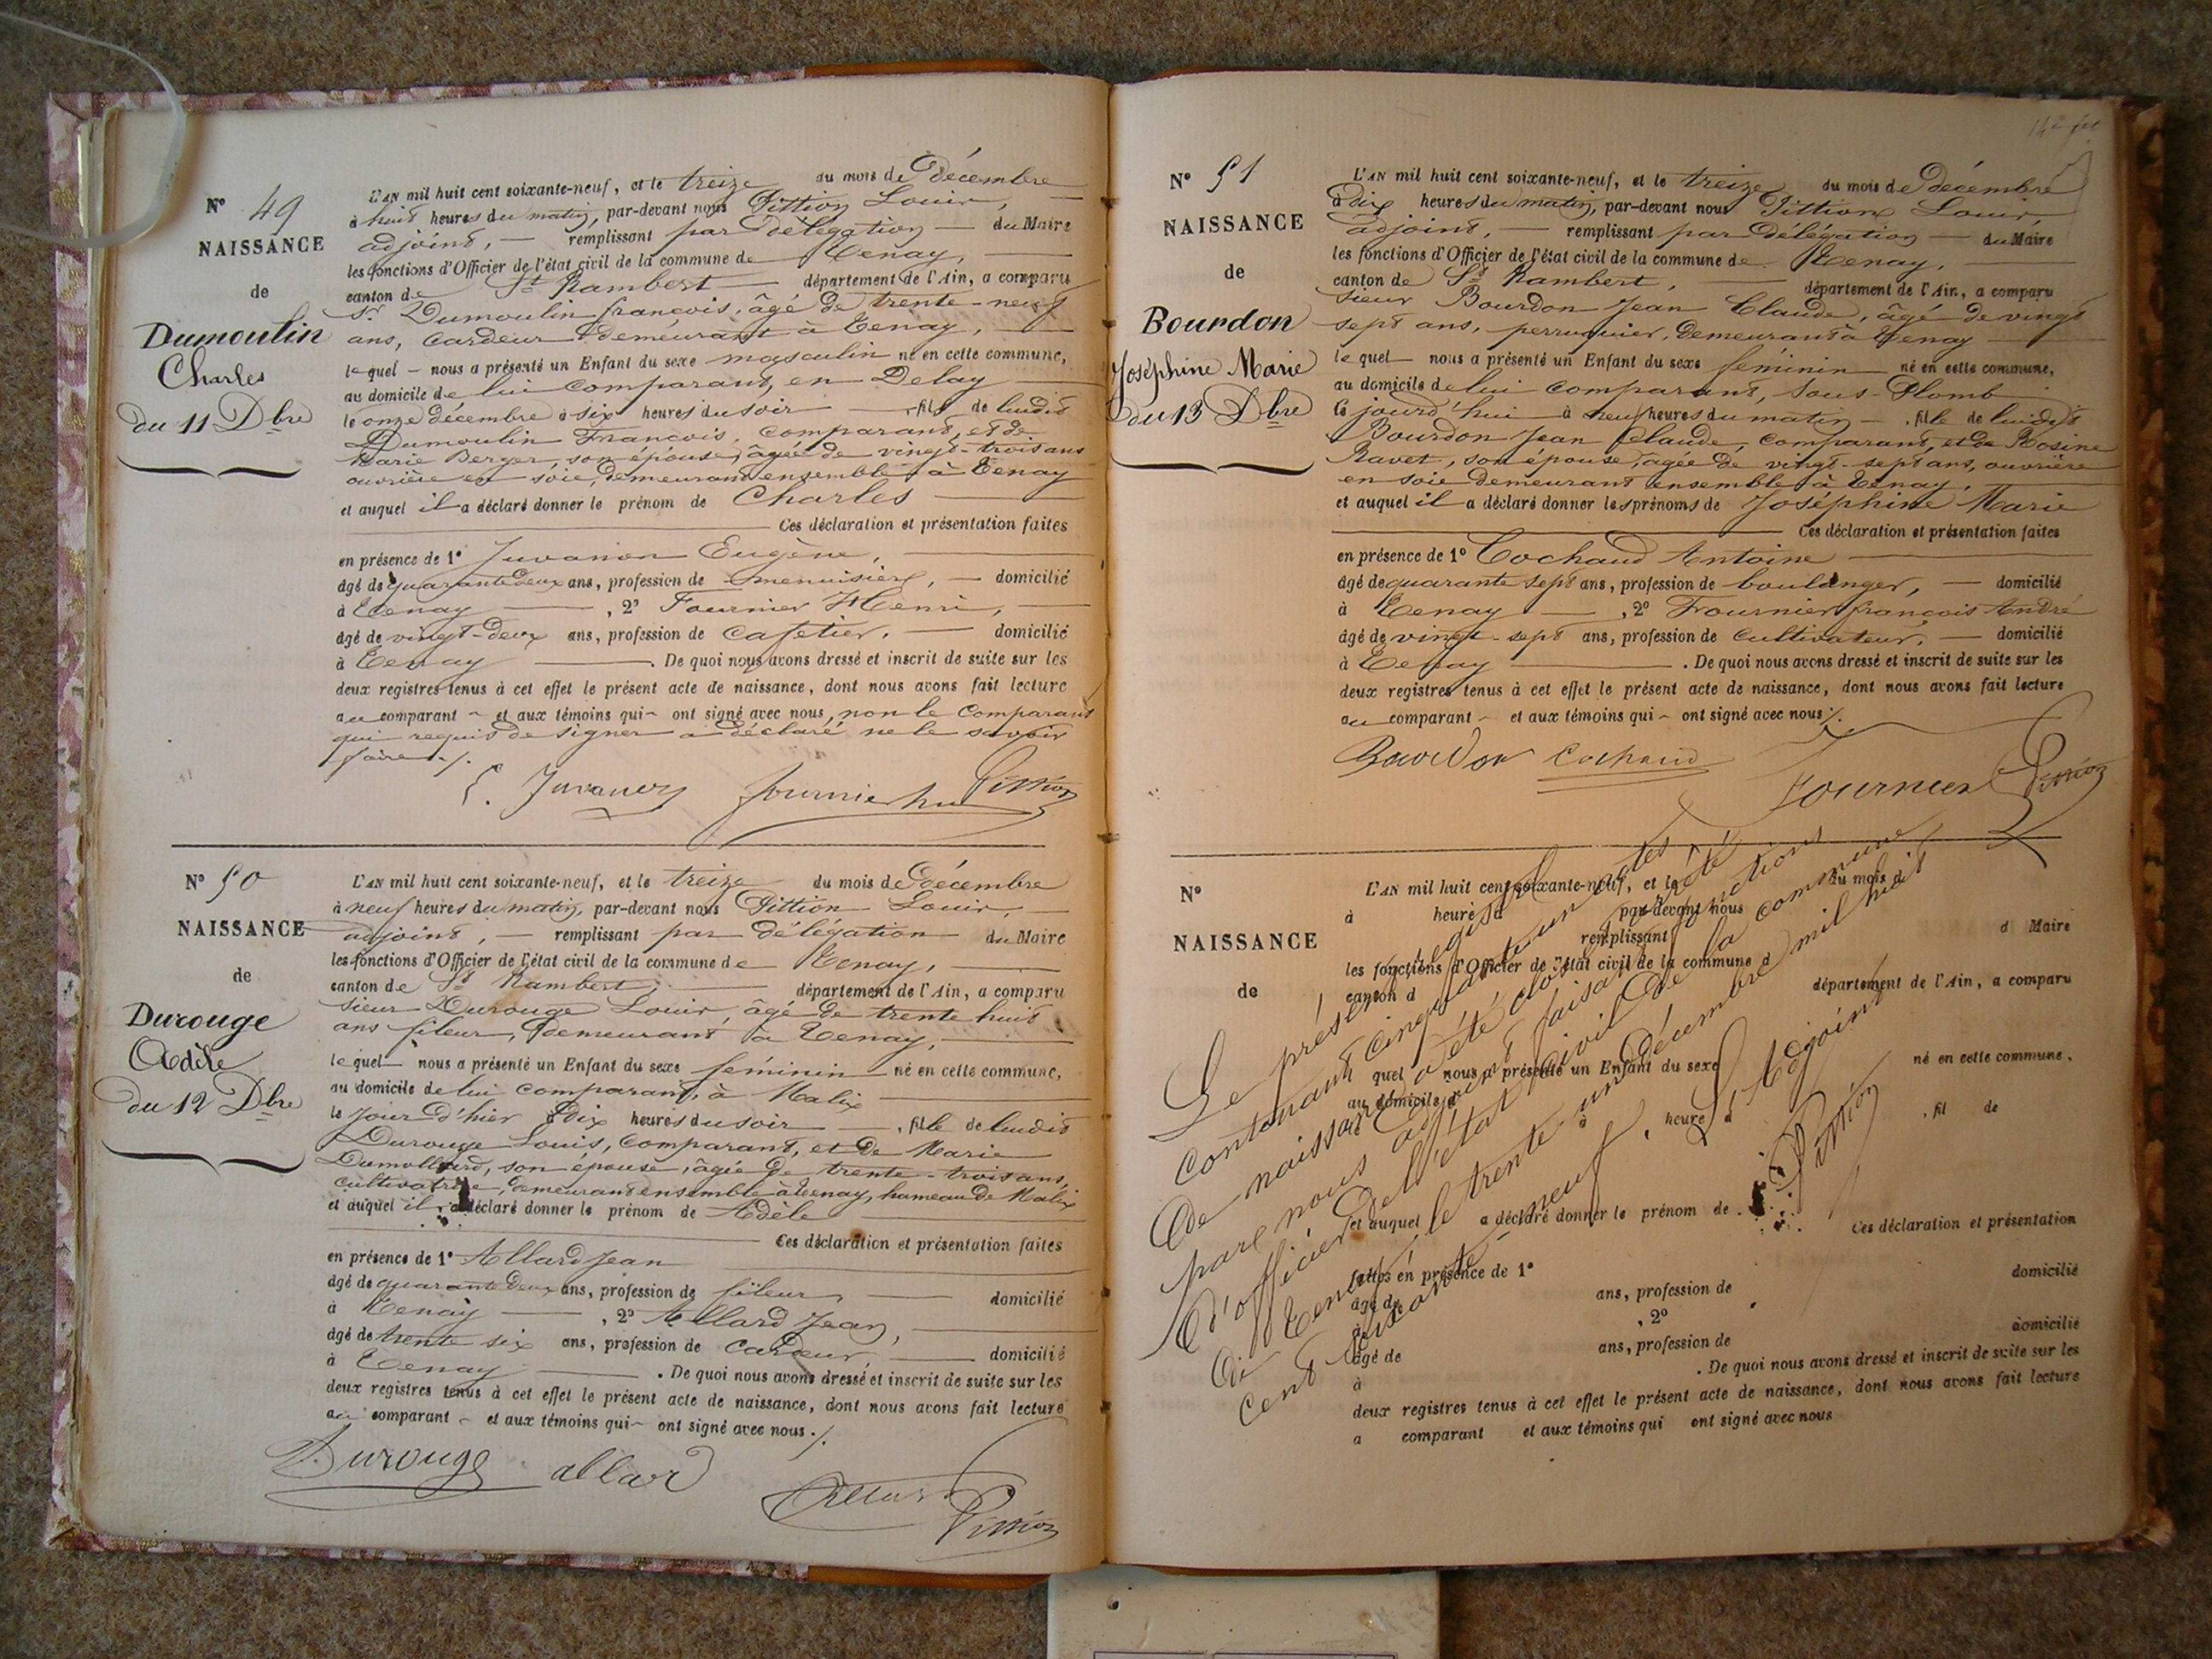 N° 49
NAISSANCE
de
Dumoulin
Charles
du 11 Dbre
L'AN mil huit cent soixante-neuf, et le treize du mois de Décembre
à huit heures du matin, par-devant nous Pittion Louis,
adjoint, — remplissant par délégation — du Maire
les fonctions d'Officier de l'état civil de la commune de Tenay,
canton de St Rambert département de l'Ain, a comparu
Sr Dumoulin françois, âgé de trente-neuf
ans, cardeur demeurant à Tenay,
lequel — nous a présenté un Enfant du sexe masculin né en cette commune,
au domicile de lui comparant, en Delay
le onze décembre à six heures du soir — fils de ludit
Dumoulin François, comparant, et de
Marie Berger, son épouse, âgée de vingt-trois ans
ouvrière en soie, demeurant ensemble à Tenay
et auquel il a déclaré donner le prénom de Charles
Ces déclaration et présentation faites
en présence de 1° Juvanon Eugène,
âgé de quarante deux ans, profession de menuisier, — domicilié
à Tenay , 2° Fournier Henri,
âgé de vingt-deux ans, profession de cafetier, — domicilié
à Tenay . De quoi nous avons dressé et inscrit de suite sur les
deux registres tenus à cet effet le présent acte de naissance, dont nous avons fait lecture
au comparant ~ et aux témoins qui ~ ont signé avec nous, non le comparant
qui requis de signer a déclaré ne le savoir
faire ./.
E. Juvanon fournier hri Pittion
N° 50
NAISSANCE
de
Durouge
Adèle
du 12 Dbre
L'AN mil huit cent soixante-neuf, et le treize du mois de Décembre
à neuf heures du matin, par-devant nous Pittion Louis,
adjoint, — remplissant par délégation du Maire
les fonctions d'Officier de l'état civil de la commune de Tenay,
canton de St Rambert, département de l'Ain, a comparu
sieur Durouge Louis, âgé de trente huit
ans fileur, demeurant à Tenay,
lequel — nous a présenté un Enfant du sexe féminin né en cette commune,
au domicile de lui comparant, à Malix
le jour d'hier à Dix heures du soir — , fille de ludit
Durouge Louis, comparant, et de Marie
Dumollard, son épouse, âgée de trente-trois ans,
cultivatrice, demeurant ensemble à Tenay, hameau de Malix
et auquel il a déclaré donner le prénom de Adèle
Ces déclaration et présentation faites
en présence de 1° Allard Jean
âgé de quarante deux ans, profession de fileur, domicilié
à Tenay , 2° Allard Jean,
âgé de trente six ans, profession de cardeur, domicilié
à Tenay . De quoi nous avons dressé et inscrit de suite sur les
deux registres tenus à cet effet le présent acte de naissance, dont nous avons fait lecture
au comparant ~ et aux témoins qui ~ ont signé avec nous ./.
Durouge allard
Pittion
N° 51
NAISSANCE
de
Bourdon
Joséphine Marie
du 13 Dbre
L'AN mil huit cent soixante-neuf, et le treize du mois de Décembre
à Dix heures du matin, par-devant nous Pittion Louis,
adjoint, — remplissant par délégation — du Maire
les fonctions d'Officier de l'état civil de la commune de Tenay,
canton de St Rambert, département de l'Ain, a comparu
sieur Bourdon Jean Claude, âgé de vingt
sept ans, perruquier, demeurant à Tenay
lequel — nous a présenté un Enfant du sexe féminin né en cette commune,
au domicile de lui comparant, Sous-Plomb
le jourd'hui à neuf heures du matin — , fille de ludit
Bourdon Jean Claude, comparant, et de Rosine
Ravet, son épouse, âgée de vingt-sept ans, ouvrière
en soie demeurant ensemble à Tenay,
et auquel il a déclaré donner les prénoms de Joséphine Marie
Ces déclaration et présentation faites
en présence de 1° Cochaud Antoine
âgé de quarante sept ans, profession de boulanger, — domicilié
à Tenay , 2° Fournier françois André
âgé de vingt-sept ans, profession de cultivateur, — domicilié
à Tenay . De quoi nous avons dressé et inscrit de suite sur les
deux registres tenus à cet effet le présent acte de naissance, dont nous avons fait lecture
au comparant ~ et aux témoins qui ~ ont signé avec nous ./.
Bourdon Cochaud Fournier Pittion
N°
NAISSANCE
de
L'AN mil huit cent soixante-neuf, et le du mois d
à heure d par-devant nous
remplissant d Maire
les fonctions d'Officier de l'état civil de la commune d
canton d département de l'Ain, a comparu
quel nous a présenté un Enfant du sexe né en cette commune,
au domicile d
à heure d , fil de
et auquel a déclaré donner le prénom de
Ces déclaration et présentation
faites en présence de 1°
âgé de ans, profession de domicilié
à , 2°
âgé de ans, profession de domicilié
à . De quoi nous avons dressé et inscrit de suite sur les
deux registres tenus à cet effet le présent acte de naissance, dont nous avons fait lecture
a comparant et aux témoins qui ont signé avec nous
Le présent registre
contenant cinquante un actes
de naissance a été clos et arrêté
par nous adjoint faisant fonctions
d'officier de l'état civil de la commune
de Tenay, le trente un décembre mil huit
cent soixante-neuf.
L'Adjoint
Pittion